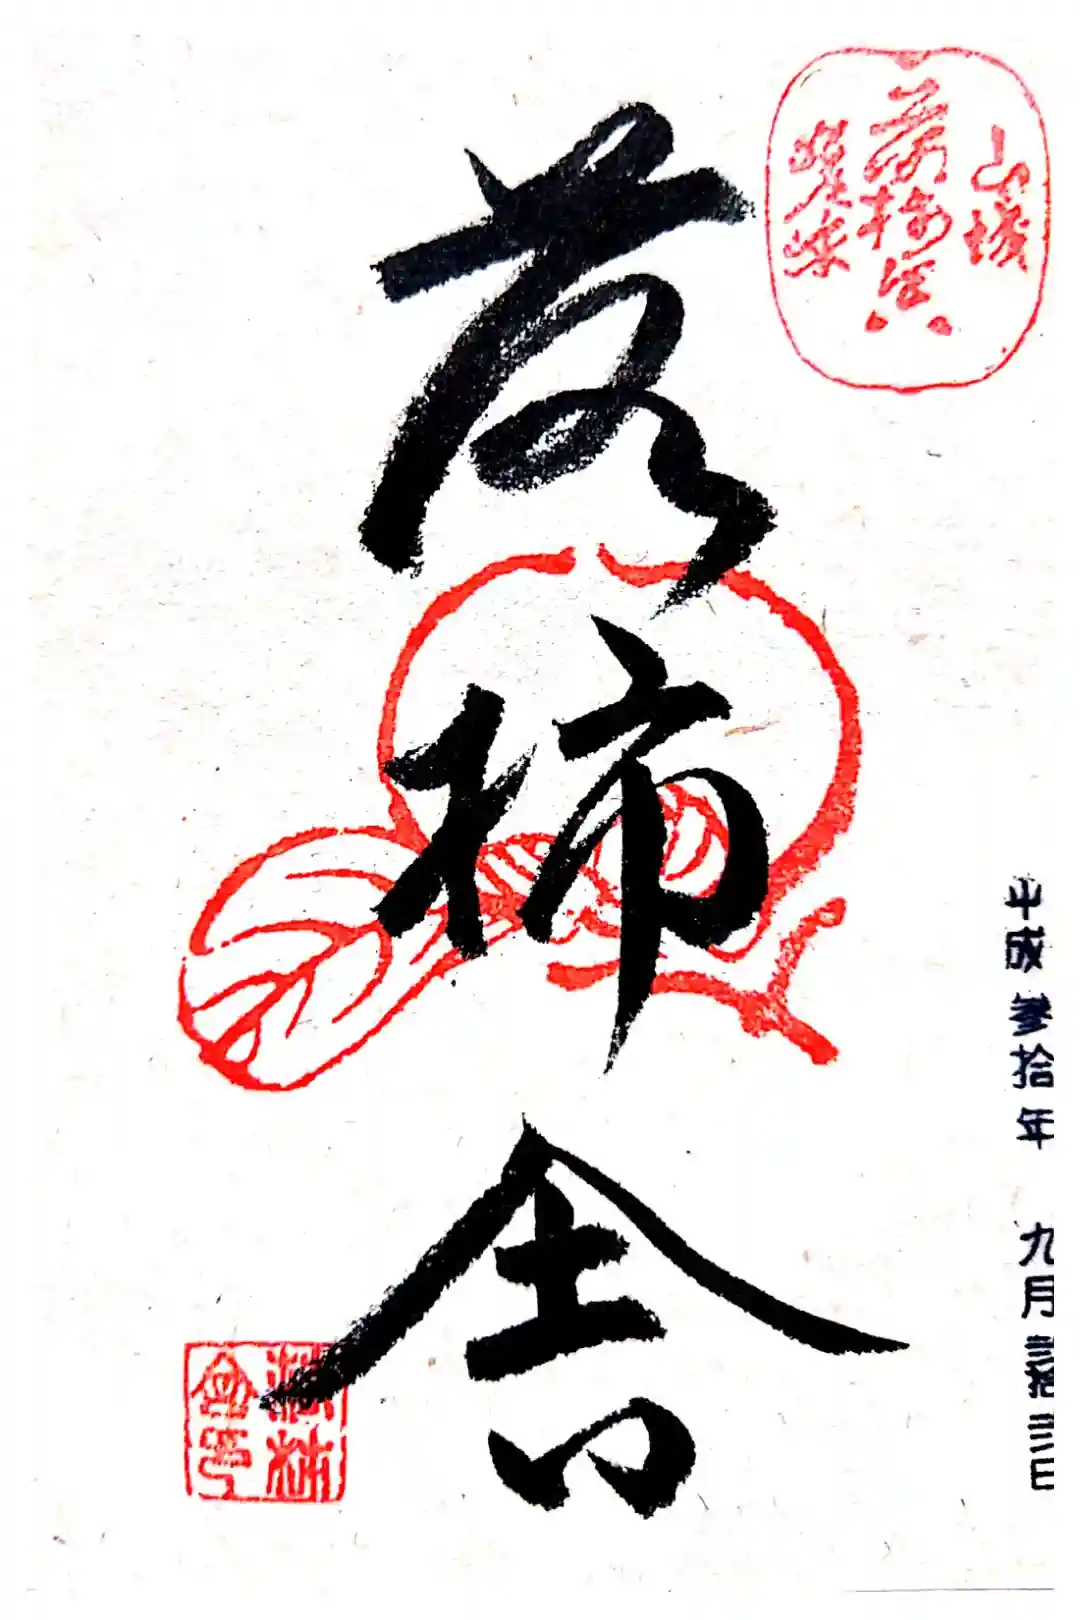 山城
落柿舎
嵯峨
落柿舎
平成参拾年 九月弐拾三日